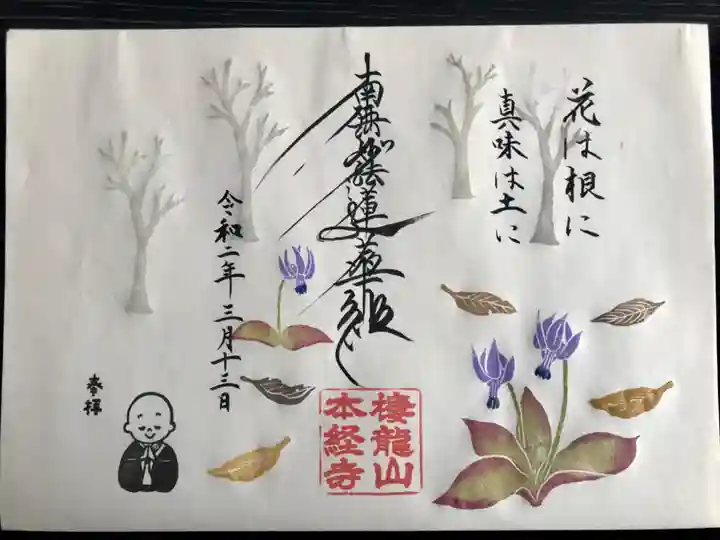 花は根に
真味は土に
南無妙法蓮華経
令和二年三月十三日
奉拝
棲龍山
本経寺